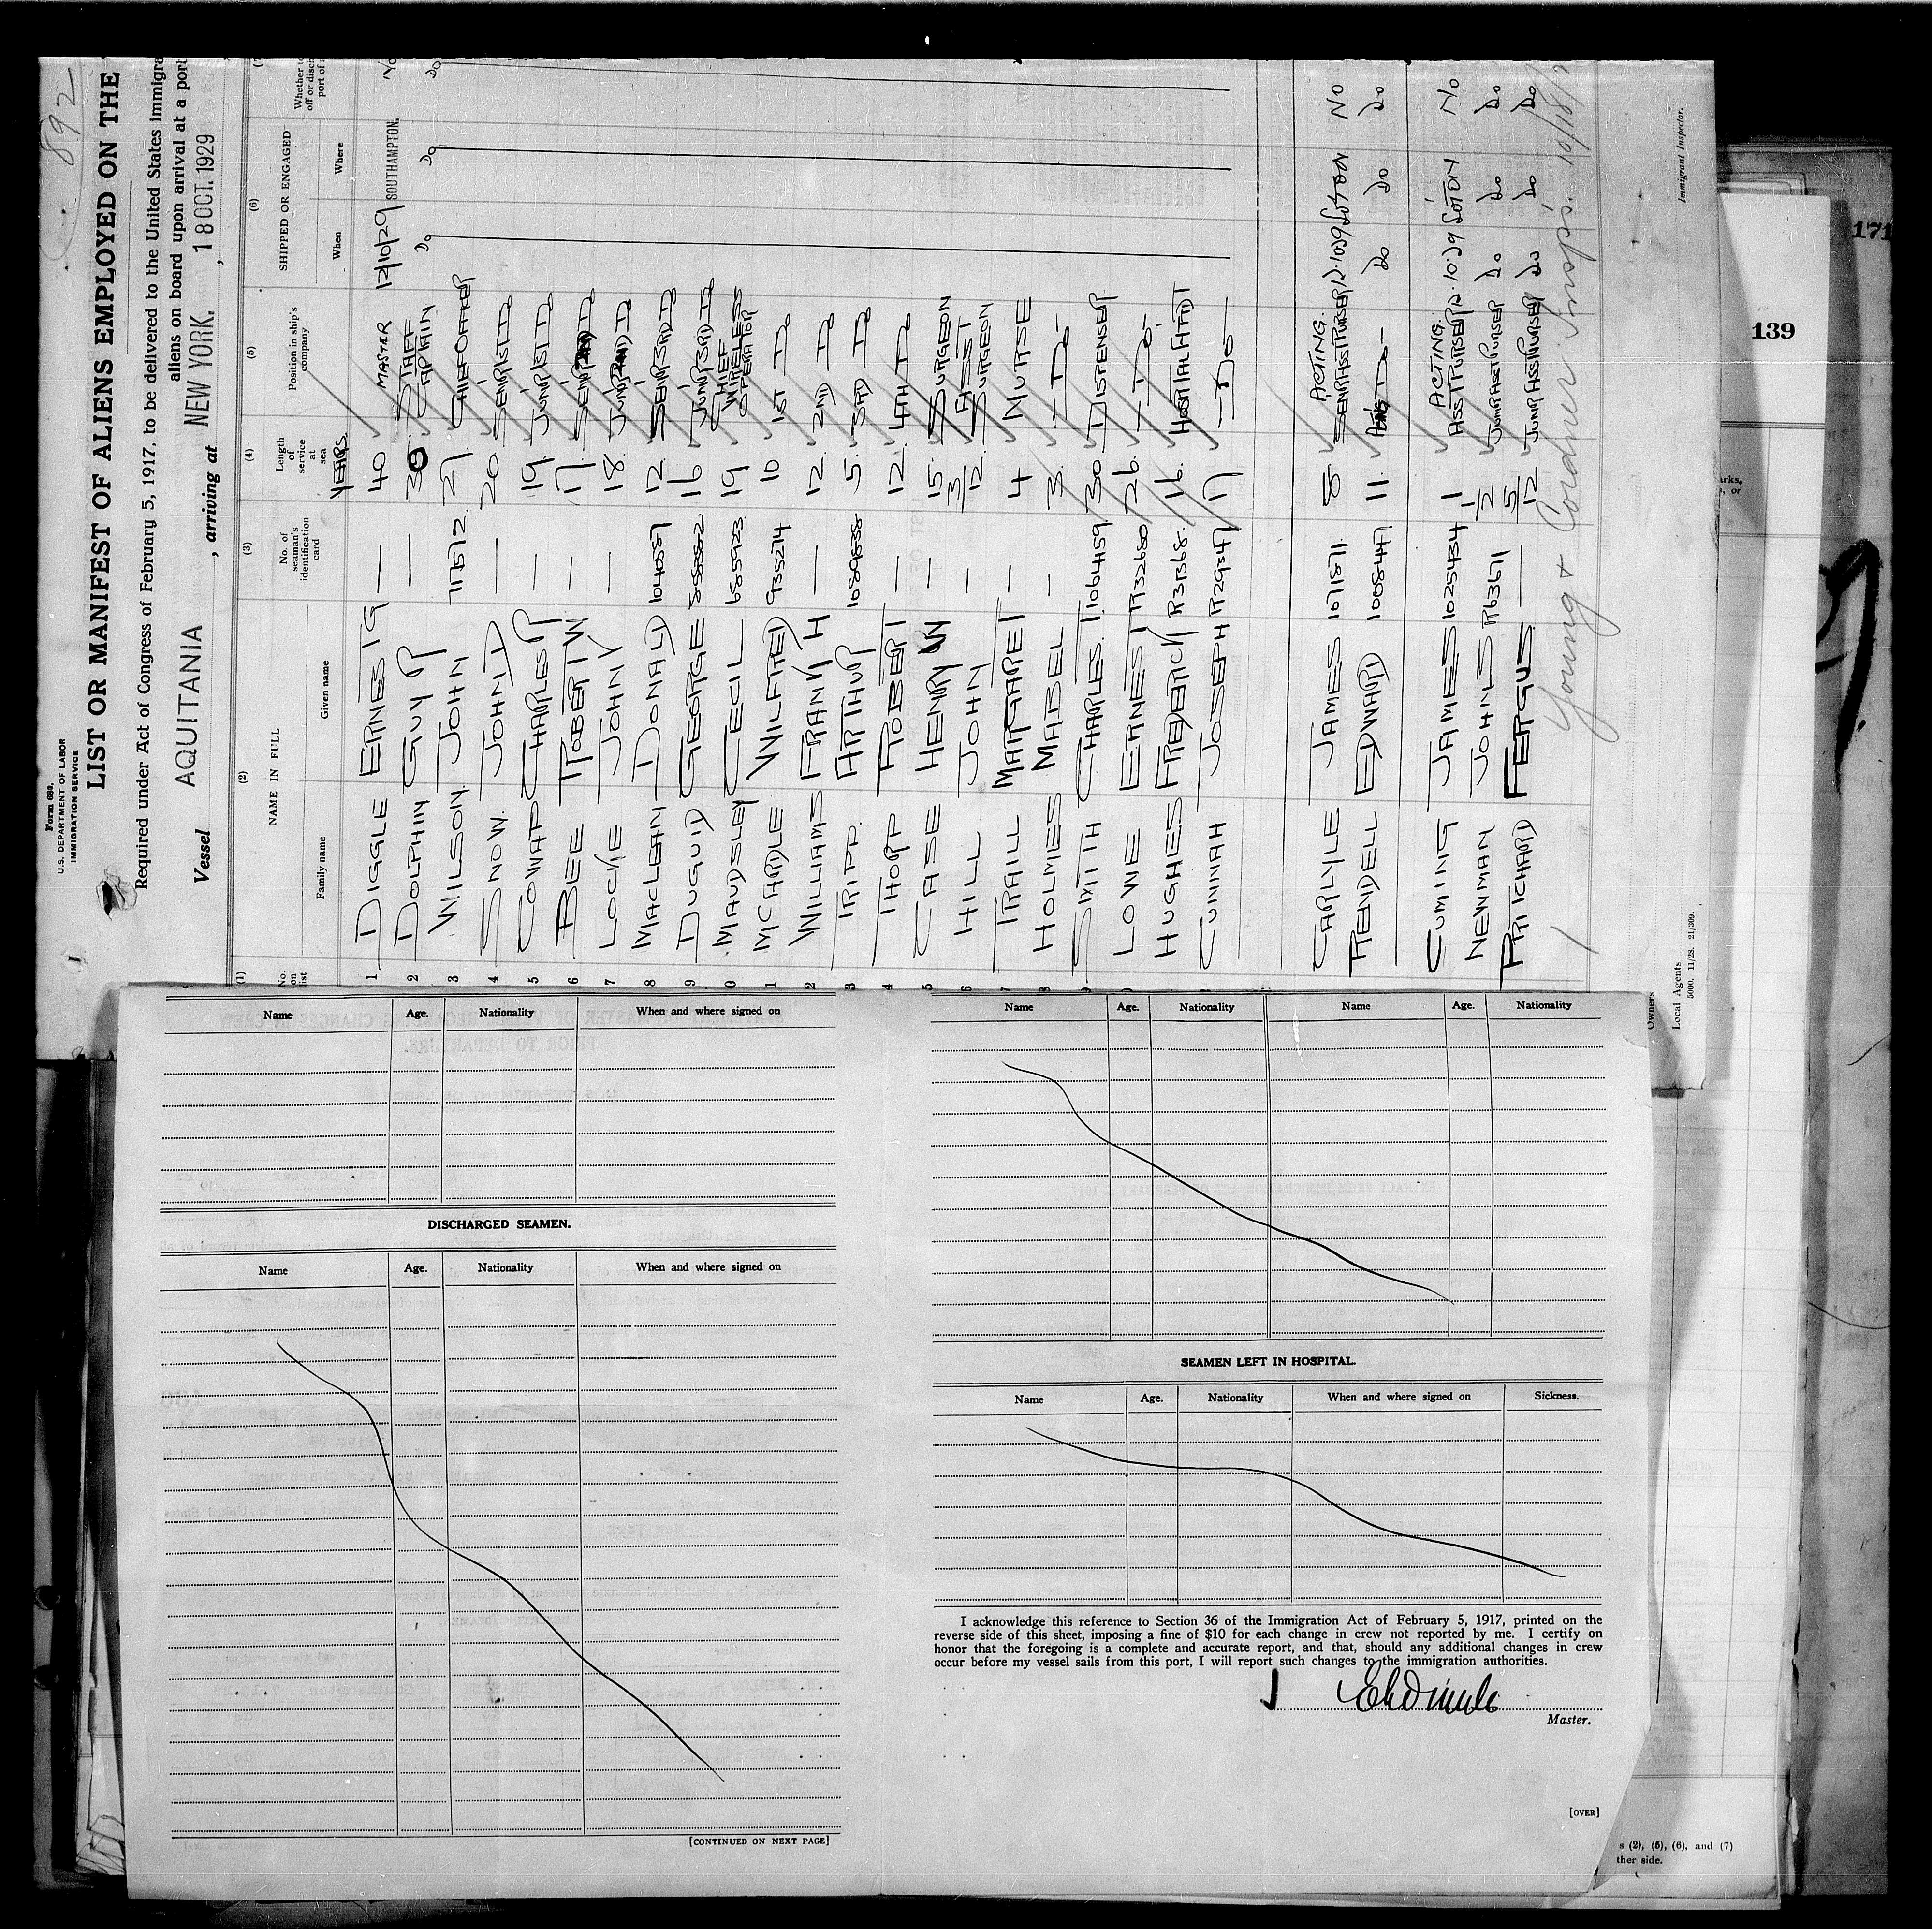 892
Form 689.
U.S. DEPARTMENT OF LABOR
IMMIGRATION SERVICE
LIST OR MANIFEST OF ALIENS EMPLOYED ON THE
Required under Act of Congress of February 5, 1917, to be delivered to the United States immigra
aliens on board upon arrival at a port
Vessel AQUITANIA, arriving at NEW YORK. , 18 OCT. 1929
(1) (2) (3) (4) (5) (6)
No. on list NAME IN FULL No. of seaman's identification card Length of service at sea Position in ship's company SHIPPED OR ENGAGED Whether to off or disch port of a
Family name Given name When Where
YEARS
1 DIGGLE ERNEST G — 40 MASTER 12/10/29 SOUTHAMPTON. No
2 DOLPHIN GUY P — 30 STAFF CAPTAIN Do Do Do
3 WILSON JOHN 717572 27 CHIEF OFFICER
4 SNOW JOHN D — 20 SENR 1ST D
5 COWAP CHARLES P — 19 JUNR 1ST D
6 BEE ROBERT W — 17 SENR 2ND D
7 LOCKIE JOHN Y — 18 JUNR 2ND D
8 MACLEAN DONALD 1040087 12 SENR 3RD D
9 DUGUID GEORGE 16 JUNR 3RD D
0 MAUDSLEY CECIL 685923 19 CHIEF WIRELESS OPERATOR
1 MCARDLE WILFRED 935274 10 1ST D
2 WILLIAMS FRANK H — 12 2ND D
3 TRIPP ARTHUR 1089838 5 3RD D
4 THORP ROBERT — 12 4TH D
5 CASE HENRY W — 15 SURGEON
6 HILL JOHN — 3/12 ASST SURGEON
7 TRAILL MARGARET — 4 NURSE
8 HOLMES MABEL — 3 -D-
9 SMITH CHARLES T 1064459 30 DISPENSER
LOWE ERNEST R32680 26 -Do-
HUGHES FREDERICK R313168 16 HOSPITAL ATTDT
CUNNAH JOSEPH R29347 17 -Do-
CARLYLE JAMES 1071871 8 ACTING SENR ASST PURSER 12.10.29 SOTON No
RENDELL EDWARD 1008447 11 ACTING D- Do Do Do
CUMING JAMES 1025434 1 ACTING ASST PURSER 12.10.29 SOTON No
NEWMAN JOHN S R63671 1/2 JUNR ASST PURSER Do Do Do
PRITCHARD FERGUS — 5/12 JUNR ASST PURSER Do Do Do
Young & Cordner Insprs. 10/18/2
Immigrant Inspector.
Owners
Local Agents
5000. 11/28. 21/309.
171
139
arks,
, or
Name Age. Nationality When and where signed on
DISCHARGED SEAMEN.
Name Age. Nationality When and where signed on
[CONTINUED ON NEXT PAGE]
Name Age. Nationality Name Age. Nationality
SEAMEN LEFT IN HOSPITAL.
Name Age. Nationality When and where signed on Sickness.
I acknowledge this reference to Section 36 of the Immigration Act of February 5, 1917, printed on the
reverse side of this sheet, imposing a fine of $10 for each change in crew not reported by me. I certify on
honor that the foregoing is a complete and accurate report, and that, should any additional changes in crew
occur before my vessel sails from this port, I will report such changes to the immigration authorities.
Master.
[OVER]
s (2), (5), (6), and (7)
ther side.